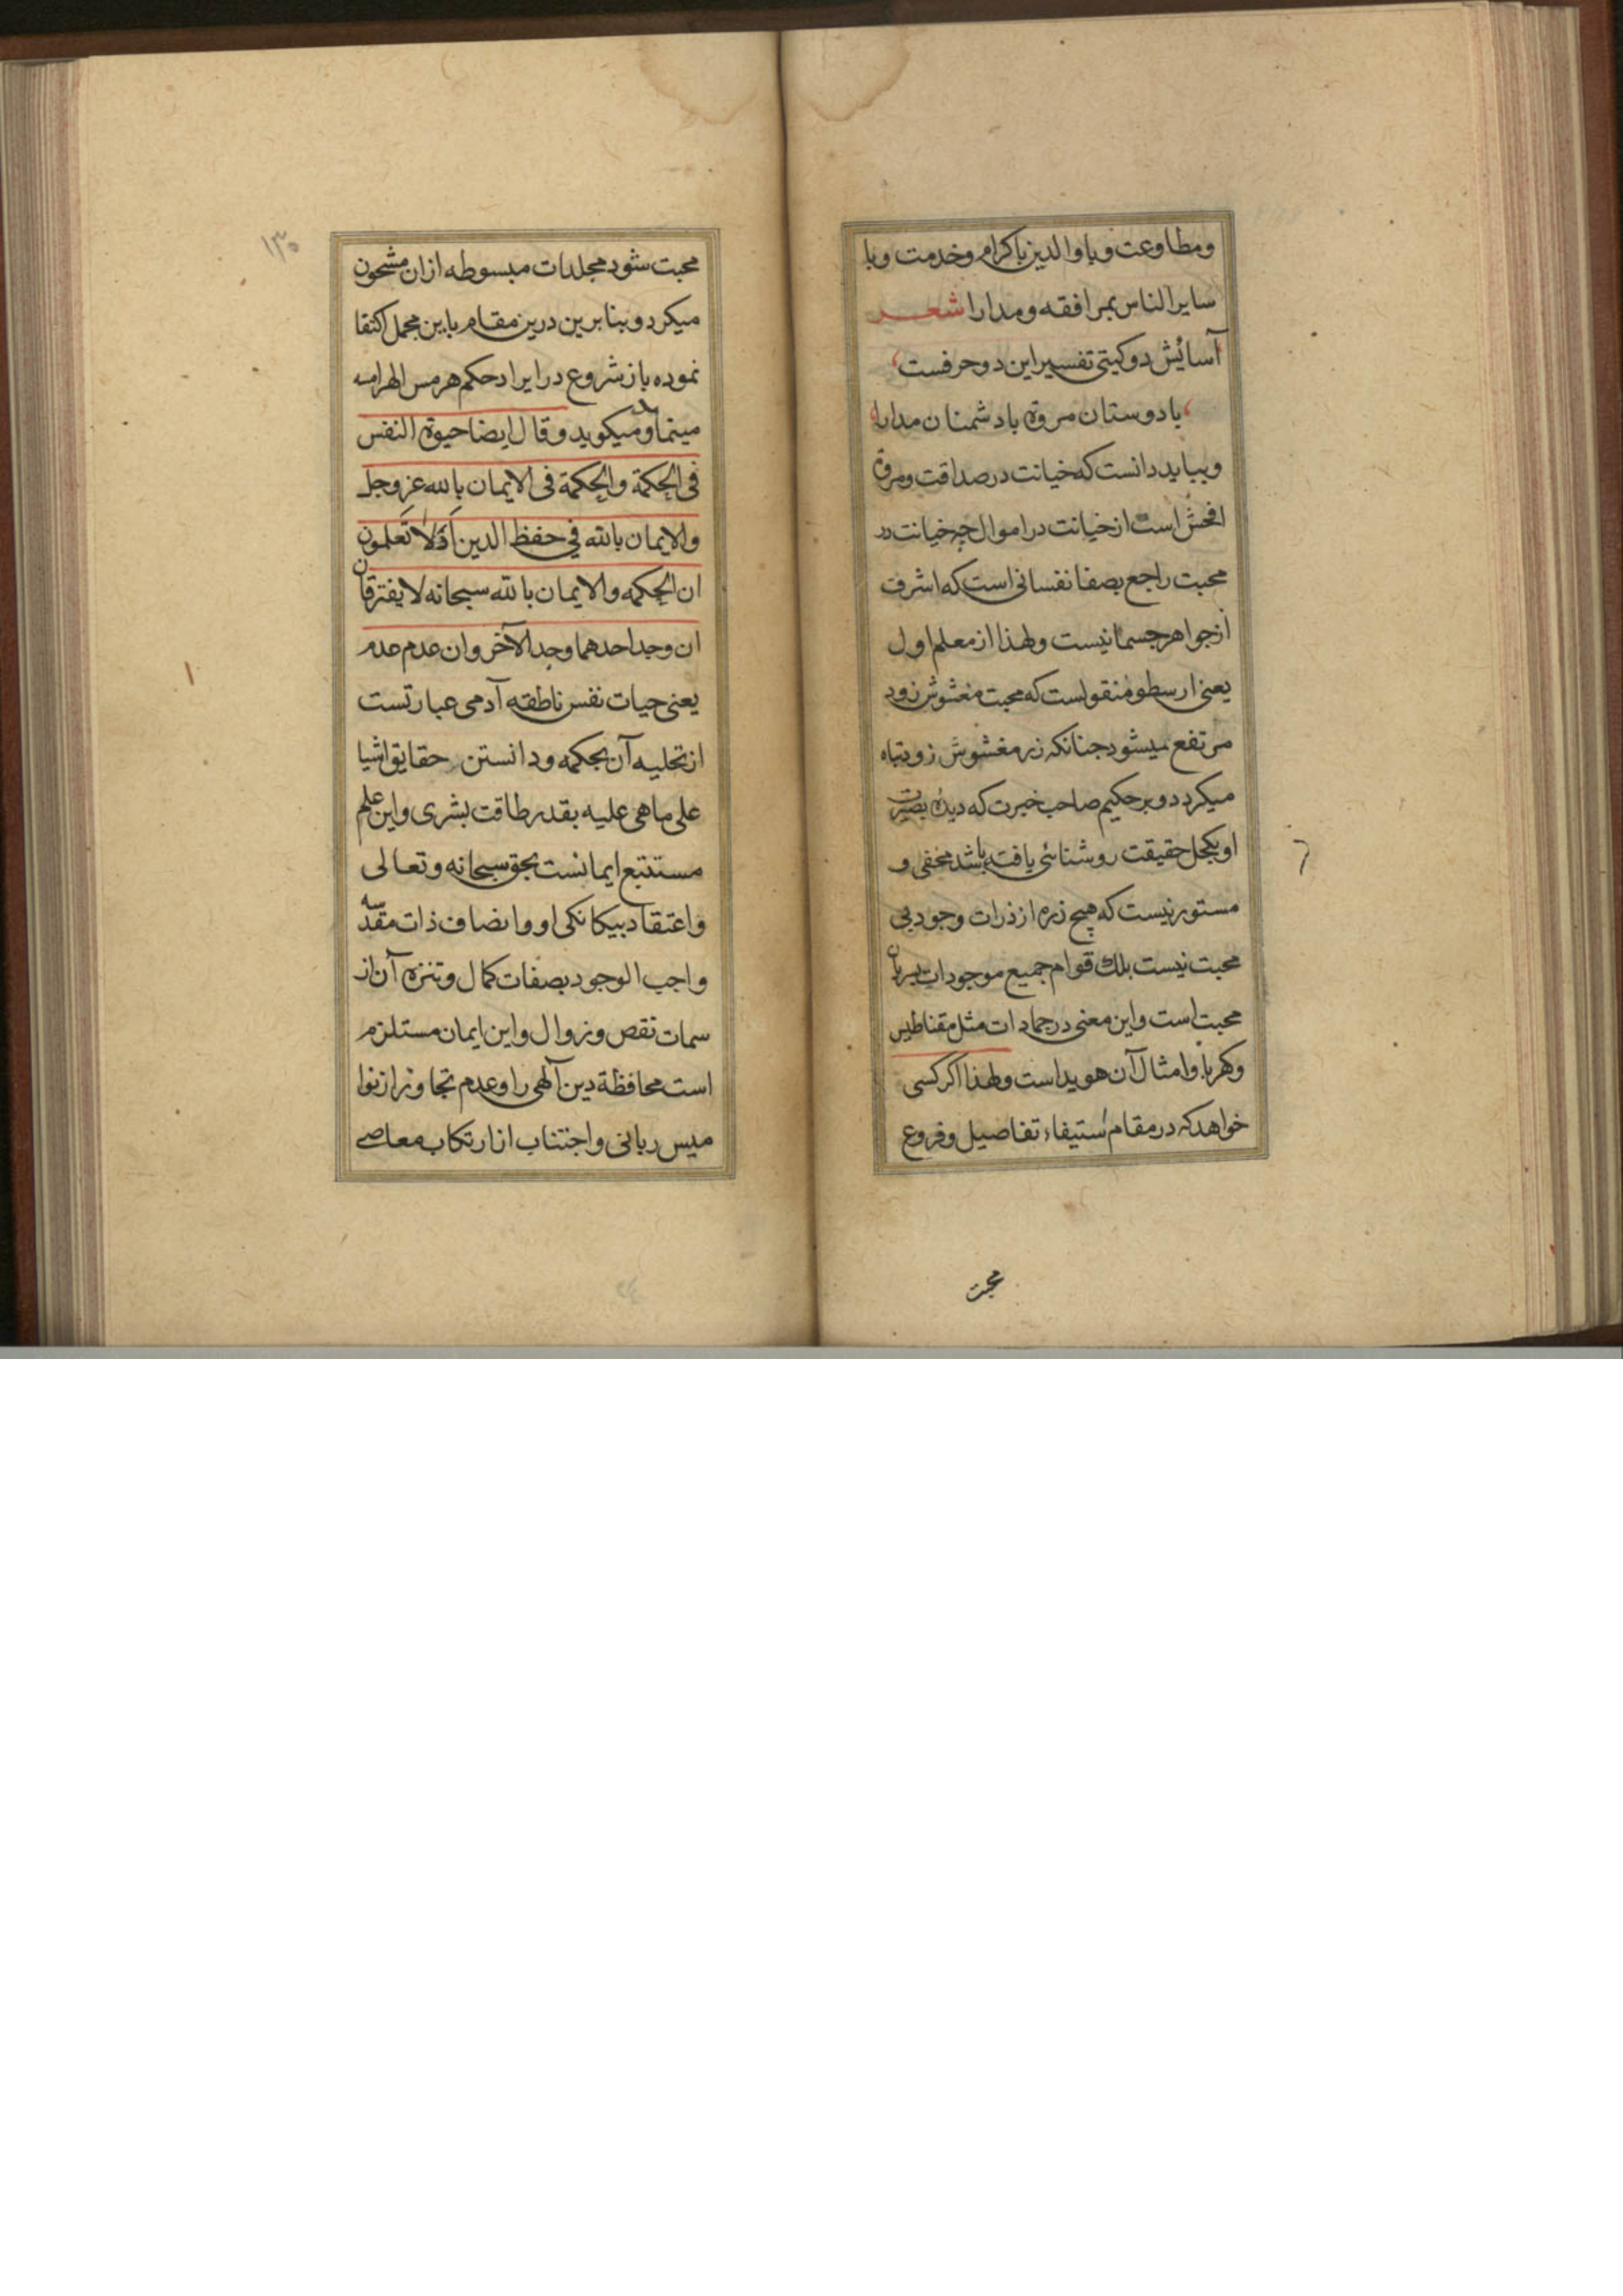 ومطاوعت وبا والدین باکرام وخدمت وبا
سایر الناس بمرافقه ومدارا شعر
آسایش دو کیتی تفسیر این دو حرفست
با دوستان مروة با دشمنان مدارا
وبباید دانست که خیانت در صداقت ومروة
افحش است از خیانت در اموال چه خیانت در
محبت راجع بصفا نفسانی است که اشرف
از جواهر جسمانیست ولهذا از معلم اول
یعنی ارسطو منقولست که محبت مغشوش زود
مرتفع میشود جنانکه زر مغشوش زود تباه
میکردد وبر حکیم صاحب خبرت که دیدۀ بصیرت
او بکحل حقیقت روشنائی یافته باشد مخفی و
مستور نیست که هیچ ذره از ذرات وجود بی
محبت نیست بلک قوام جمیع موجودات بسریان
محبت است واین معنی در جمادات مثل مقناطیس
وکهربا وامثال آن هویداست ولهذا اکر کسی
خواهد که در مقام استیفاء تفاصیل وفروع
محبت
١٣٠
محبت شود مجلدات مبسوطه ازان مشحون
میکردد وبنابرین درین مقام باین مجمل اکتفا
نموده باز شروع در ایراد حکم هرمس الهرامسه
مینماید ومیکوید وقال ایضا حیوة النفس
فی الحکمة والحکمة فی الایمان بالله عز وجل
والایمان بالله فی حفظ الدین أفلا تعلمون
ان الحکمه والایمان بالله سبحانه لا یفترقان
ان وجد احدهما وجد الآخر وان عدم عدم
یعنی حیات نفس ناطقه آدمی عبارتست
از تحلیه آن بحکمه ودانستن حقایق اشیا
علی ماهی علیه بقدر طاقت بشری واین علم
مستتبع ایمانست بحق سبحانه وتعالی
واعتقاد بیکانکی او واتصاف ذات مقدسه
واجب الوجود بصفات کمال وتنزه آن از
سمات نقص وزوال واین ایمان مستلزم
است محافظة دین آلهی را وعدم تجاوز از نوا
میس ربانی واجتناب از ارتکاب معاصی